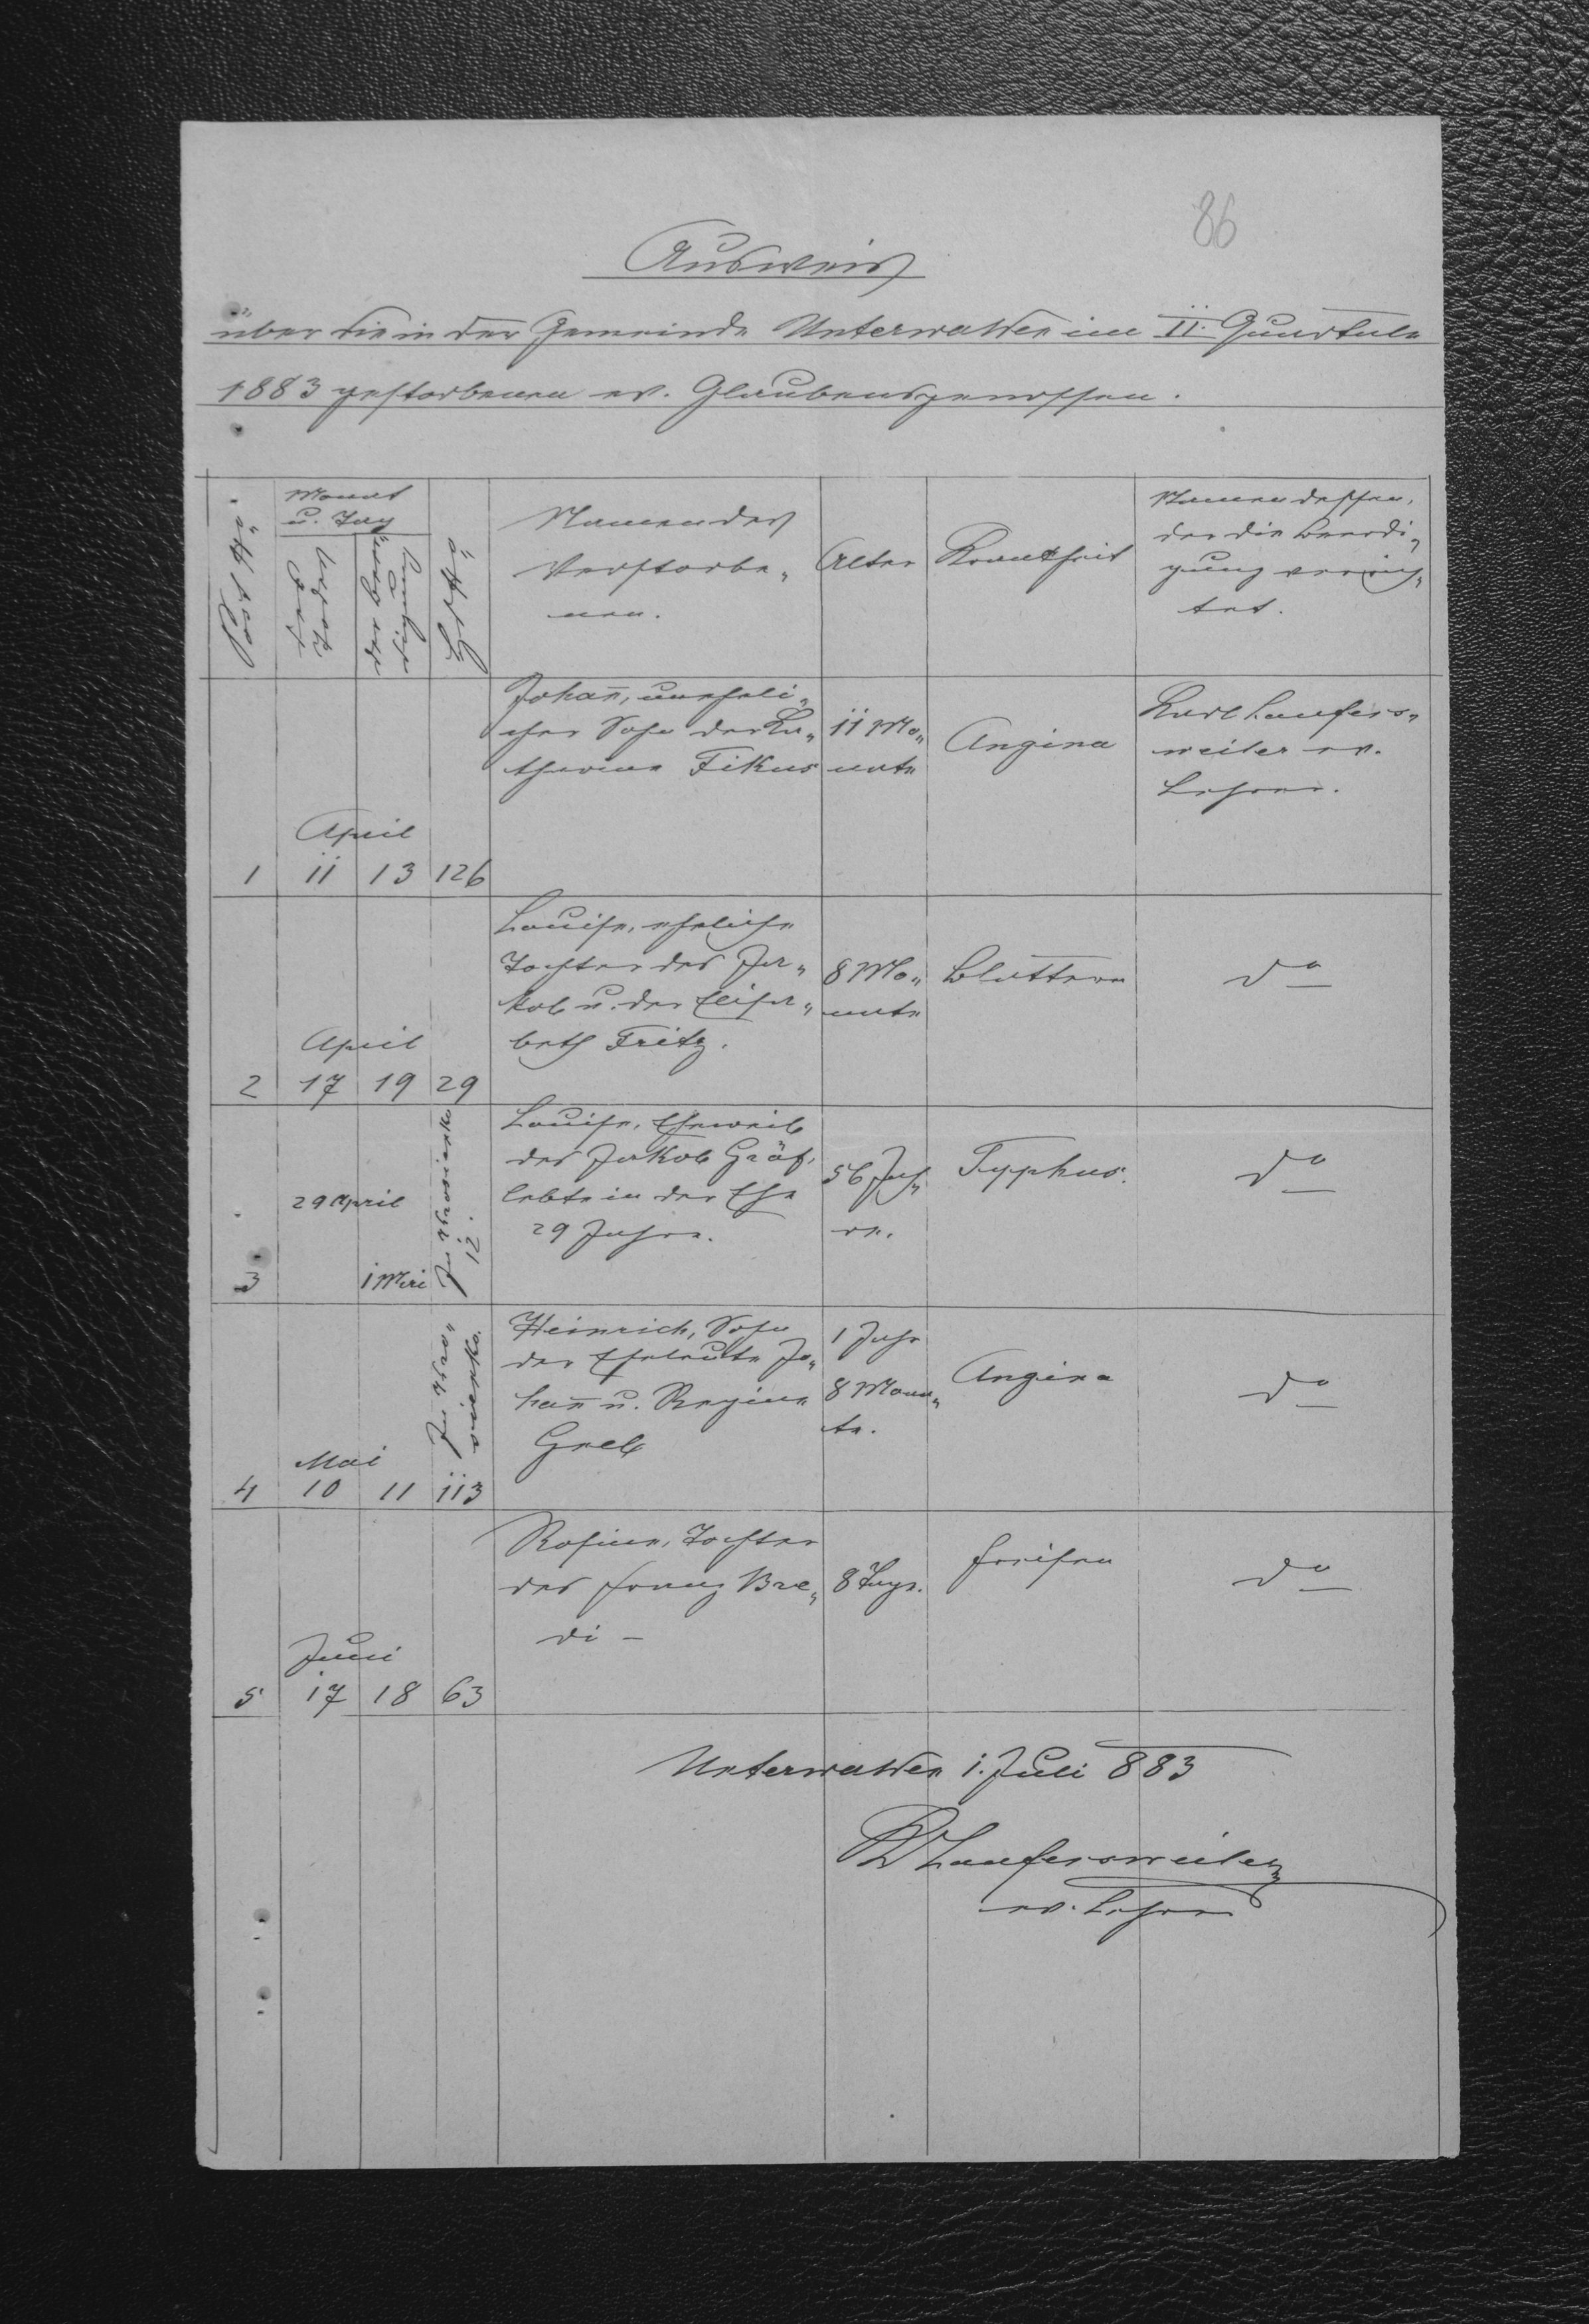 86
Ausweis
über die in der Gemeinde Unterwalden im II. Quartale
1883 gestorbenen ev. Glaubensgenossen.
Post No
Monat
u. Tag
des
Todes
der Beer„
digung
Hs No
Namen des
Verstorbe„
nen.
Alter
Krankheit
Namen dessen,
der die Beerdi„
gung verrich„
tet.
1
April
11 13 126
Johan̄, uneheli„
cher Sohn der Ka„
tharina Fikus
11 Mo„
nate
Angina
Karl Laufers„
weiler ev.
Lehrer.
2
April
17 19 29
Louise, eheliche
Tochter des Ja„
kob u. der Elisa„
beth Fritz.
8 Mo„
nate
Blattern
do
3
29 April
1 Mai
12.
Louise, Eheweib
des Jakob Gräf,
lebte in der Ehe
29 Jahre.
56 Jah„
re.
Typhus.
do
4
Mai
10 11 113
Heinrich, Sohn
der Eheleute Jo„
han̄ u. Regina
Greb
1 Jahr
8 Mona„
te.
Angina
do
5
Juni
17 18 63
Rosina, Tochter
des Franz Bre„
di –
8 Tage.
Fraisen
do
Unterwalden 1. Juli 883
Laufersweiler
ev. Lehrer